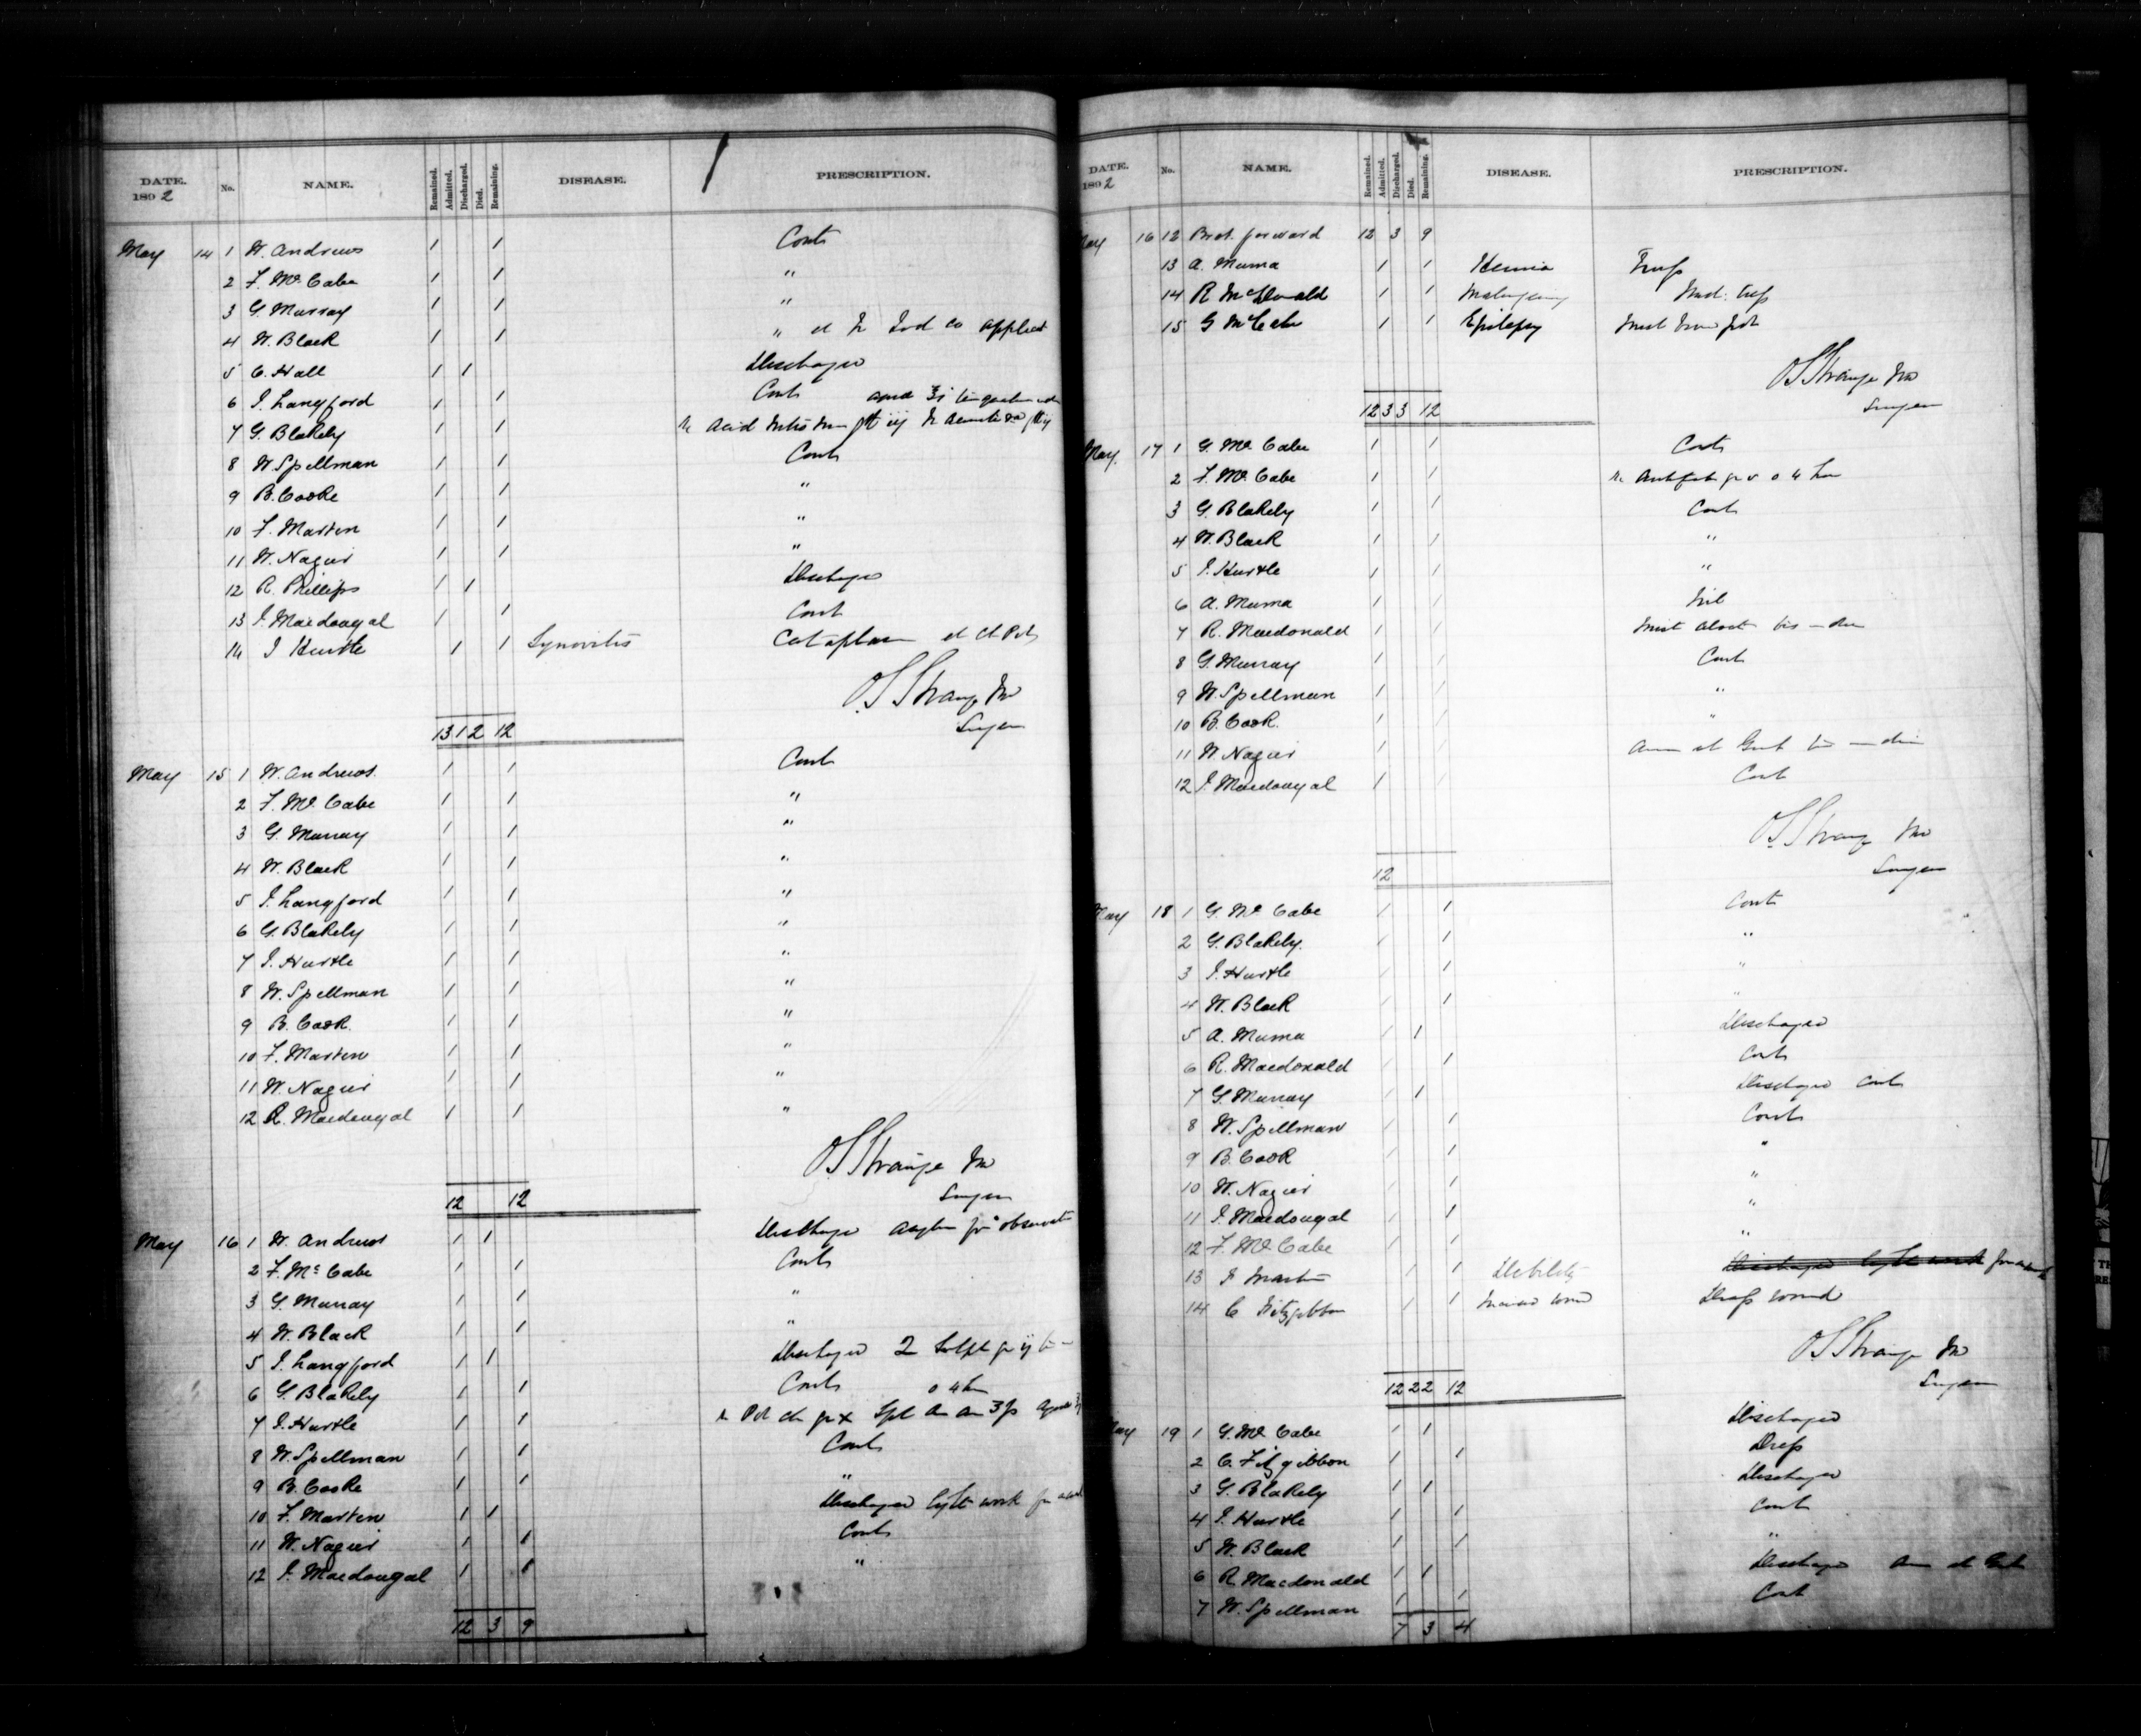 DATE. 1892 No. NAME. Remained. Admitted. Discharged. Died. Remaining. DISEASE. PRESCRIPTION.
May 14 1 W. Andrews 1 1 Cont
2 F. McCabe 1 1 "
3 G. Murray 1 1 "
4 W. Black 1 1 "
5 C. Hall 1 1 Discharged
6 J. Langford 1 1 Cont
7 G. Blakely 1 1
8 W. Spellman 1 1 Cont
9 B. Cooke 1 1 "
10 F. Marten 1 1 "
11 W. Nagier 1 1 "
12 R. Phillips 1 1 Discharged
13 J. Macdougal 1 1 Cont
14 J Hurtle 1 1 Synovitis Cataplasm
O.S. Strange MD
13 1 2 12 Surgeon
May 15 1 W. Andrews. 1 1 Cont
2 F. McCabe 1 1 "
3 G. Murray 1 1 "
4 W. Black 1 1 "
5 J. Langford 1 1 "
6 G. Blakely 1 1 "
7 J. Hurtle 1 1 "
8 W. Spellman 1 1 "
9 B. Cook. 1 1 "
10 F. Marten 1 1 "
11 W. Nagier 1 1 "
12 R. Macdougal 1 1 "
O.S. Strange MD
12 12 Surgeon
May 16 1 W. Andrews 1 1 Discharged Asylum for observat
2 F. McCabe 1 1 Cont
3 G. Murray 1 1 "
4 W. Black 1 1 "
5 J. Langford 1 1 Discharged
6 G. Blakely 1 1 Cont
7 J. Hurtle 1 1
8 W. Spellman 1 1 Cont
9 B. Cooke 1 1 "
10 F. Marten 1 1 Discharged light work for
11 W. Nagier 1 1 Cont
12 J. Macdougal 1 1 "
12 3 9
DATE. 1892 No. NAME. Remained. Admitted. Discharged. Died. Remaining. DISEASE. PRESCRIPTION.
May 16 12 Brot. forward 12 3 9
13 A. Muma 1 1 Hernia Truss
14 R McDonald 1 1 Malingering
15 G McCabe 1 1 Epilepsy
O.S. Strange MD
12 3 3 12 Surgeon
May. 17 1 G. McCabe 1 1 Cont
2 F. McCabe 1 1
3 G. Blakely 1 1 Cont
4 W. Black 1 1 "
5 J. Hurtle 1 1 "
6 A. Muma 1 1 Nil
7 R. Macdonald 1 1
8 G. Murray 1 1 Cont
9 W. Spellman 1 1 "
10 B. Cook. 1 1 "
11 W. Nagier 1 1
12 J. Macdougal 1 1 Cont
O.S. Strange MD
12 Surgeon
May 18 1 G. McCabe 1 1 Cont
2 G. Blakely. 1 1 "
3 J. Hurtle 1 1 "
4 W. Black 1 1 "
5 A. Muma 1 1 Discharged
6 R. Macdonald 1 1 Cont
7 G. Murray 1 1 Discharged Cont
8 W. Spellman 1 1 Cont
9 B. Cook 1 1 "
10 W. Nagier 1 1 "
11 J. Macdougal 1 1 "
12 F. McCabe 1 1 "
13 F Marten 1 1 Debility Discharged light work for
14 C Fitzgibbon 1 1 Dress wound
O.S. Strange MD
12 2 2 12 Surgeon
May 19 1 G. McCabe 1 1 Discharged
2 C. Fitzgibbon 1 1 Dress
3 G. Blakely 1 1 Discharged
4 J. Hurtle 1 1 Cont
5 W. Black 1 1 "
6 R Macdonald 1 1 Discharged
7 W. Spellman 1 1 Cont
7 3 4